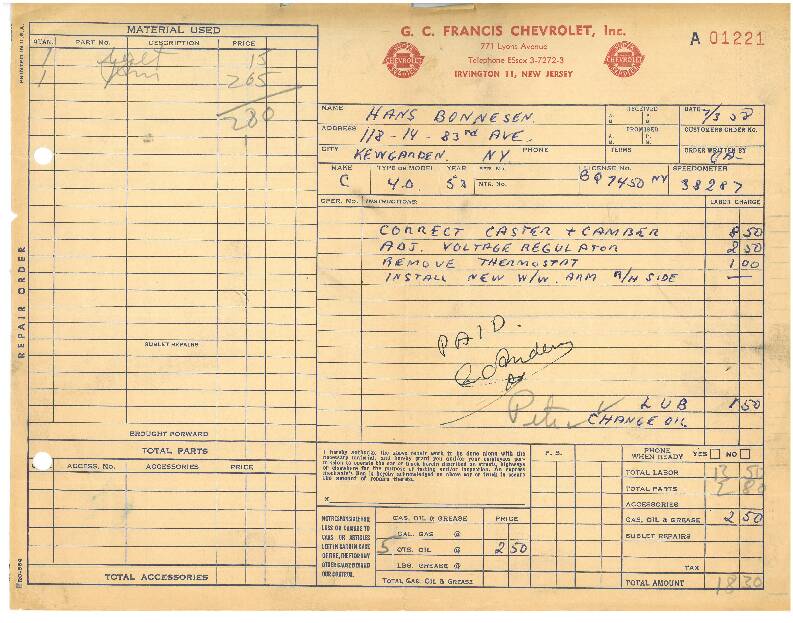 MATERIAL USED
QUAN. PART No. DESCRIPTION PRICE
1 Gasket 15
1 Arm 265
280
SUBLET REPAIRS
BROUGHT FORWARD
TOTAL PARTS
ACCESS. No. ACCESSORIES PRICE
TOTAL ACCESSORIES
PRINTED IN U.S.A.
REPAIR ORDER
G. C. FRANCIS CHEVROLET, Inc.
771 Lyons Avenue
Telephone ESsex 3-7272-3
IRVINGTON 11, NEW JERSEY
CHEVROLET
CHEVROLET
A 01221
NAME HANS BONNESEN RECEIVED A. M. P. M. DATE 7/3 58
ADDRESS 118-14-83rd AVE. PROMISED A. M. P. M. CUSTOMERS ORDER No.
CITY KEWGARDEN. NY PHONE TERMS ORDER WRITTEN BY
MAKE C TYPE OR MODEL 4D YEAR 53 MTR. No. LICENSE No. BQ7450 NY SPEEDOMETER 38287
OPER. No. INSTRUCTIONS: LABOR CHARGE
CORRECT CASTER + CAMBER 8 50
ADJ. VOLTAGE REGULATOR 2 50
REMOVE THERMOSTAT 1 00
INSTALL NEW W/W. ARM R/H SIDE —
PAID.
Peter
LUB 1 50
CHANGE OIL
I hereby authorize the above repair work to be done along with the necessary material, and hereby grant you and/or your employees permission to operate the car or truck herein described on streets, highways or elsewhere for the purpose of testing and/or inspection. An express mechanic's lien is hereby acknowledged on above car or truck to secure the amount of repairs thereto.
X
P. S.
PHONE WHEN READY YES NO
TOTAL LABOR 13 50
TOTAL PARTS 2 80
ACCESSORIES
GAS, OIL & GREASE 2 50
SUBLET REPAIRS
TAX
TOTAL AMOUNT 18 30
NOT RESPONSIBLE FOR
LOSS OR DAMAGE TO
CARS OR ARTICLES
LEFT IN CARS IN CASE
OF FIRE, THEFT OR ANY
OTHER CAUSE BEYOND
OUR CONTROL
GAS, OIL & GREASE PRICE
GAL. GAS @
5 QTS. OIL @ 2 50
LBS. GREASE @
TOTAL GAS, OIL & GREASE